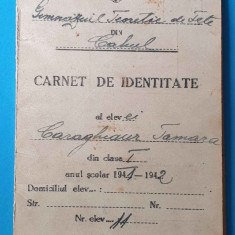 Gimnaziul Teoretic de Fete
DIN
Cahul
CARNET DE IDENTITATE
al elev ei
Caraghiaur Tamara
din clasa I
anul școlar 1941-1942
Domiciliul elev...:
Str. Nr.
Nr. elev 11